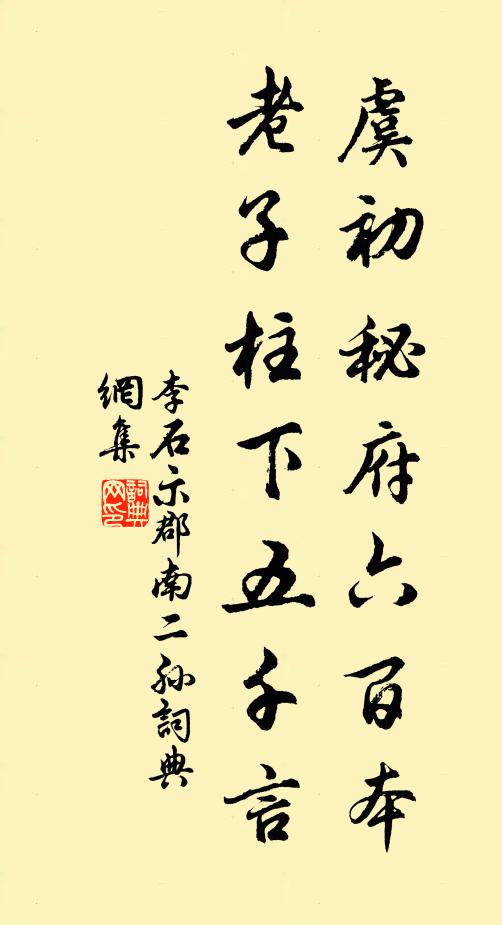 虞初秘府六百本
老子柱下五千言
李石示郡南二孙詞典
網集
詞典
网印